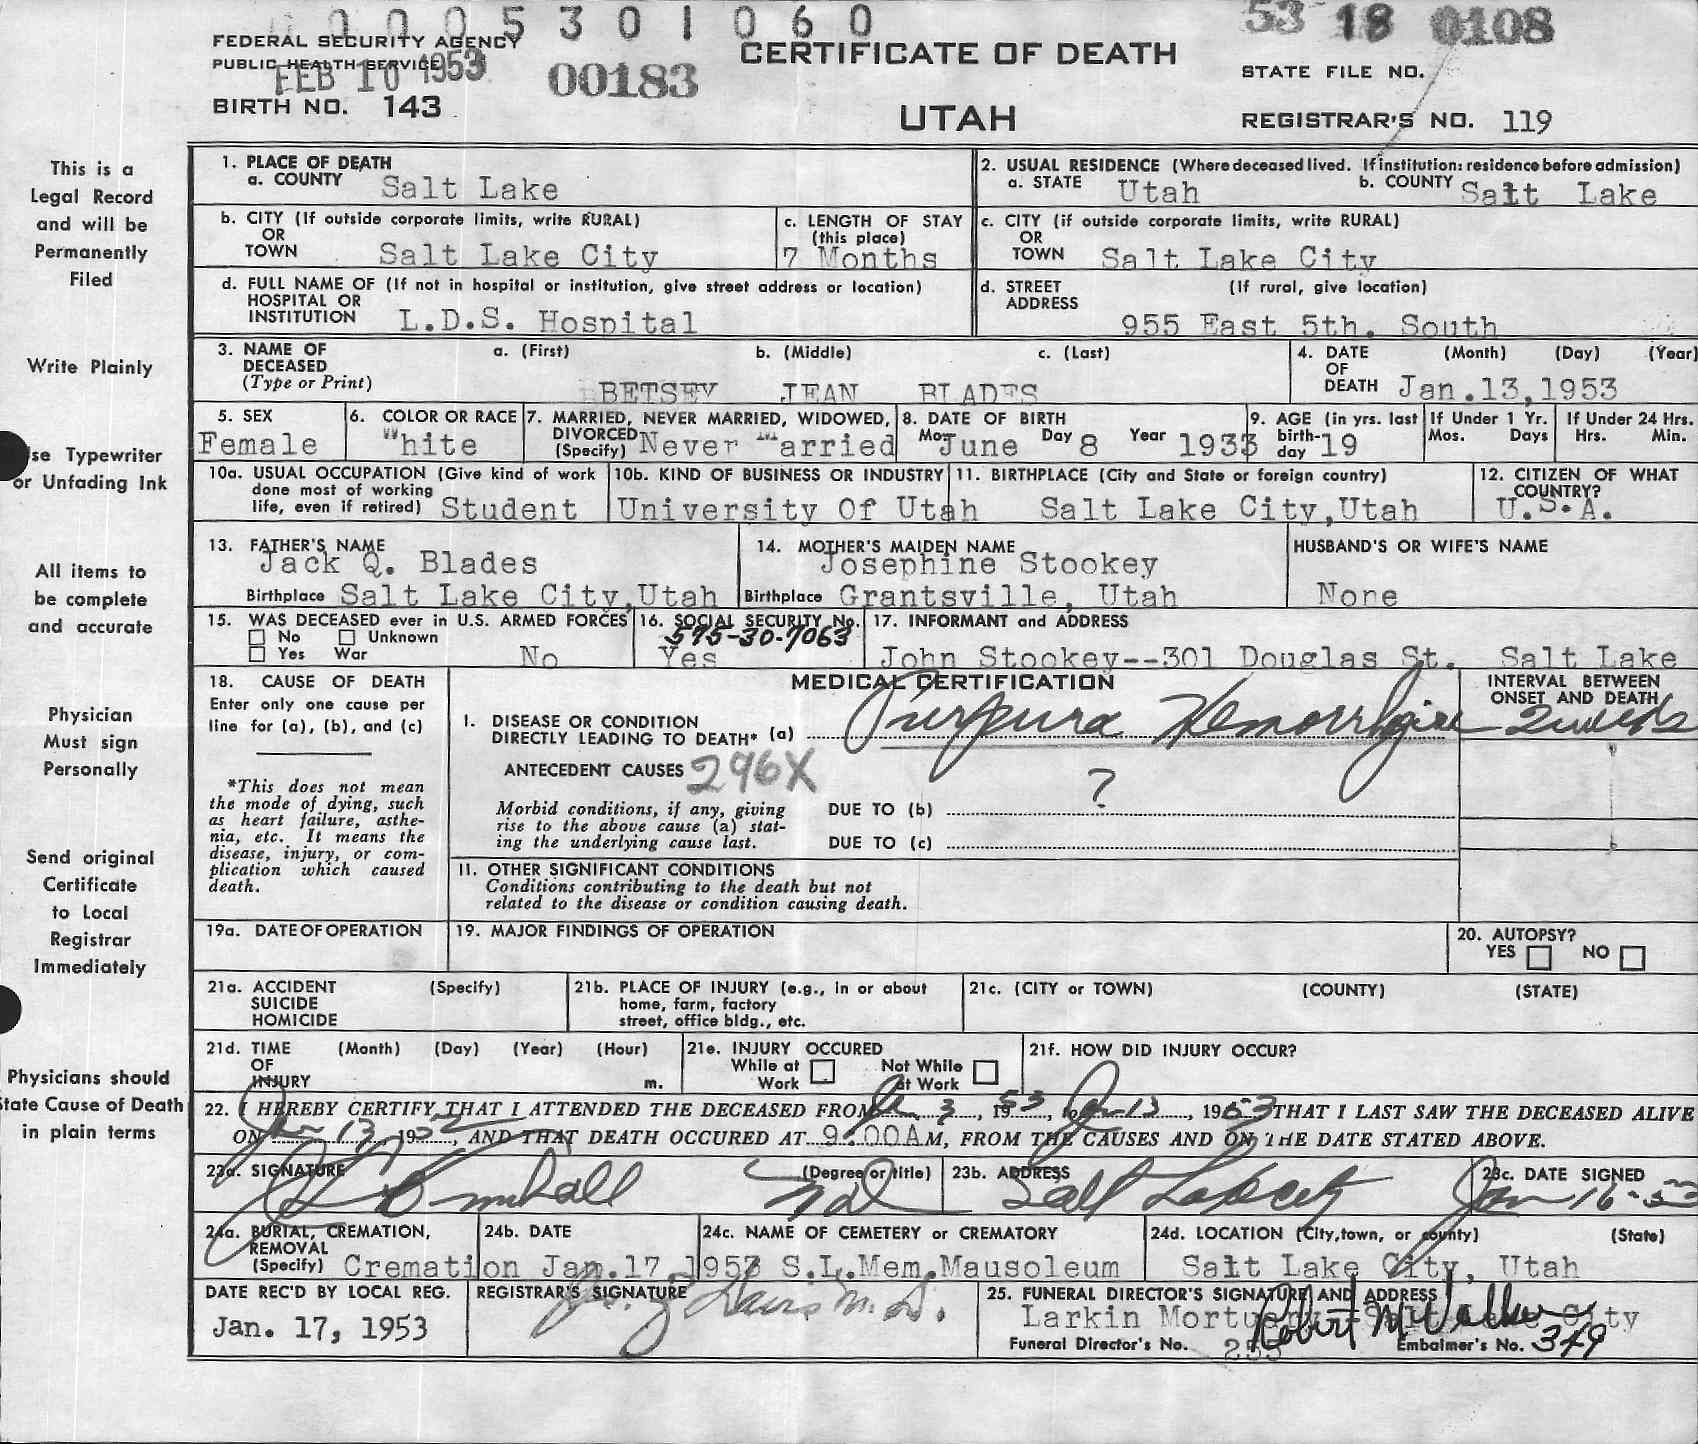 0005301060
53 18 0108
FEDERAL SECURITY AGENCY
PUBLIC HEALTH SERVICE
FEB 10 1953
00183
CERTIFICATE OF DEATH
STATE FILE NO.
BIRTH NO. 143
UTAH
REGISTRAR'S NO. 119
This is a
Legal Record
and will be
Permanently
Filed
1. PLACE OF DEATH
a. COUNTY Salt Lake
2. USUAL RESIDENCE (Where deceased lived. If institution: residence before admission)
a. STATE Utah b. COUNTY Salt Lake
b. CITY (If outside corporate limits, write RURAL)
OR
TOWN Salt Lake City
c. LENGTH OF STAY
(this place)
7 Months
c. CITY (if outside corporate limits, write RURAL)
OR
TOWN Salt Lake City
d. FULL NAME OF (If not in hospital or institution, give street address or location)
HOSPITAL OR
INSTITUTION L.D.S. Hospital
d. STREET (If rural, give location)
ADDRESS
955 East 5th. South
Write Plainly
3. NAME OF a. (First) b. (Middle) c. (Last)
DECEASED
(Type or Print) BETSEY JEAN BLADES
4. DATE (Month) (Day) (Year)
OF
DEATH Jan.13,1953
se Typewriter
or Unfading Ink
5. SEX
Female
6. COLOR OR RACE
White
7. MARRIED, NEVER MARRIED, WIDOWED,
DIVORCED
(Specify) Never Married
8. DATE OF BIRTH
Mo. June Day 8 Year 1933
9. AGE (in yrs. last
birth-
day 19
If Under 1 Yr.
Mos. Days
If Under 24 Hrs.
Hrs. Min.
10a. USUAL OCCUPATION (Give kind of work
done most of working
life, even if retired) Student
10b. KIND OF BUSINESS OR INDUSTRY
University Of Utah
11. BIRTHPLACE (City and State or foreign country)
Salt Lake City,Utah
12. CITIZEN OF WHAT
COUNTRY?
U.S.A.
All items to
be complete
and accurate
13. FATHER'S NAME
Jack Q. Blades
Birthplace Salt Lake City,Utah
14. MOTHER'S MAIDEN NAME
Josephine Stookey
Birthplace Grantsville, Utah
HUSBAND'S OR WIFE'S NAME
None
15. WAS DECEASED ever in U.S. ARMED FORCES
No Unknown
Yes War No
16. SOCIAL SECURITY No.
575-30-7063
Yes
17. INFORMANT and ADDRESS
John Stookey--301 Douglas St. Salt Lake
Physician
Must sign
Personally
18. CAUSE OF DEATH
Enter only one cause per
line for (a), (b), and (c)
*This does not mean
the mode of dying, such
as heart failure, asthe-
nia, etc. It means the
disease, injury, or com-
plication which caused
death.
MEDICAL CERTIFICATION
INTERVAL BETWEEN
ONSET AND DEATH
I. DISEASE OR CONDITION
DIRECTLY LEADING TO DEATH* (a) Purpura Hemorrhagica 2 weeks
ANTECEDENT CAUSES 296X
?
Morbid conditions, if any, giving
rise to the above cause (a) stat-
ing the underlying cause last.
DUE TO (b)
DUE TO (c)
11. OTHER SIGNIFICANT CONDITIONS
Conditions contributing to the death but not
related to the disease or condition causing death.
Send original
Certificate
to Local
Registrar
Immediately
19a. DATE OF OPERATION
19. MAJOR FINDINGS OF OPERATION
20. AUTOPSY?
YES NO
21a. ACCIDENT (Specify)
SUICIDE
HOMICIDE
21b. PLACE OF INJURY (e.g., in or about
home, farm, factory
street, office bldg., etc.
21c. (CITY or TOWN) (COUNTY) (STATE)
21d. TIME (Month) (Day) (Year) (Hour)
OF
INJURY m.
21e. INJURY OCCURED
While at Not While
Work at Work
21f. HOW DID INJURY OCCUR?
Physicians should
tate Cause of Death
in plain terms
22. I HEREBY CERTIFY THAT I ATTENDED THE DECEASED FROM Jan 3, 1953, to Jan 13, 1953 THAT I LAST SAW THE DECEASED ALIVE
ON Jan 13, 1952, AND THAT DEATH OCCURED AT 9:00AM, FROM THE CAUSES AND ON THE DATE STATED ABOVE.
23a. SIGNATURE (Degree or title)
Kimball MD
23b. ADDRESS
Salt Lake City
23c. DATE SIGNED
Jan 16-53
24a. BURIAL, CREMATION,
REMOVAL
(Specify) Cremation
24b. DATE
Jan.17,1953
24c. NAME OF CEMETERY OR CREMATORY
S.L.Mem.Mausoleum
24d. LOCATION (City,town, or county) (State)
Salt Lake City, Utah
DATE REC'D BY LOCAL REG.
Jan. 17, 1953
REGISTRAR'S SIGNATURE
M.D.
25. FUNERAL DIRECTOR'S SIGNATURE AND ADDRESS
Larkin Mortuary--Salt Lake City
Robert M Walker
Funeral Director's No. 253 Embalmer's No. 349